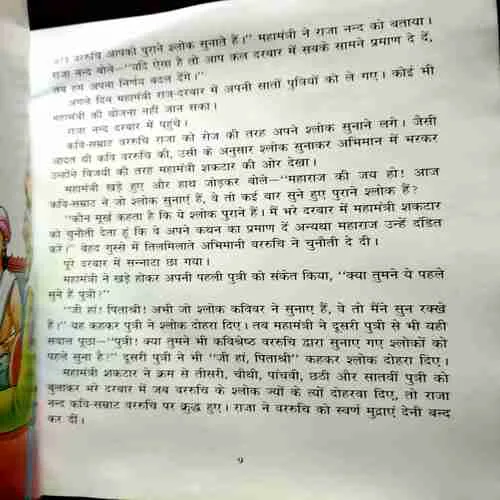 वररुचि आपको पुराने श्लोक सुनाते हैं।" महामंत्री ने राजा नन्द को बताया।
राजा नन्द बोले—"यदि ऐसा है तो आप कल दरबार में सबके सामने प्रमाण दे दें,
तब हम अपना निर्णय बदल देंगे।"
अगले दिन महामंत्री राज-दरबार में अपनी सातों पुत्रियों को ले गए। कोई भी
महामंत्री की योजना नहीं जान सका।
राजा नन्द दरबार में पहुंचे।
कवि-सम्राट वररुचि राजा को रोज की तरह अपने श्लोक सुनाने लगे। जैसी
आदत थी कवि वररुचि की, उसी के अनुसार श्लोक सुनाकर अभिमान में भरकर
उन्होंने विजयी की तरह महामंत्री शकटार की ओर देखा।
महामंत्री खड़े हुए और हाथ जोड़कर बोले—"महाराज की जय हो! आज
कवि-सम्राट ने जो श्लोक सुनाएं हैं, वे तो कई बार सुने हुए पुराने श्लोक हैं?
"कौन मूर्ख कहता है कि ये श्लोक पुराने हैं। मैं भरे दरबार में महामंत्री शकटार
को चुनौती देता हूं कि वे अपने कथन का प्रमाण दें अन्यथा महाराज उन्हें दंडित
करें।" बेहद गुस्से में तिलमिलाते अभिमानी वररुचि ने चुनौती दे दी।
पूरे दरबार में सन्नाटा छा गया।
महामंत्री ने खड़े होकर अपनी पहली पुत्री को संकेत किया, "क्या तुमने ये पहले
सुने हैं पुत्री?"
"जी हां! पिताश्री! अभी जो श्लोक कविवर ने सुनाए हैं, वे तो मैंने सुन रक्खे
हैं।" यह कहकर पुत्री ने श्लोक दोहरा दिए। तब महामंत्री ने दूसरी पुत्री से भी यही
सवाल पूछा—"पुत्री! क्या तुमने भी कविश्रेष्ठ वररुचि द्वारा सुनाए गए श्लोकों को
पहले सुना है?" दूसरी पुत्री ने भी "जी हां, पिताश्री" कहकर श्लोक दोहरा दिए।
महामंत्री शकटार ने क्रम से तीसरी, चौथी, पांचवी, छठी और सातवीं पुत्री को
बुलाकर भरे दरबार में जब वररुचि के श्लोक ज्यों के त्यों दोहरवा दिए, तो राजा
नन्द कवि-सम्राट वररुचि पर क्रुद्ध हुए। राजा ने वररुचि को स्वर्ण मुद्राएं देनी बन्द
कर दीं।
9